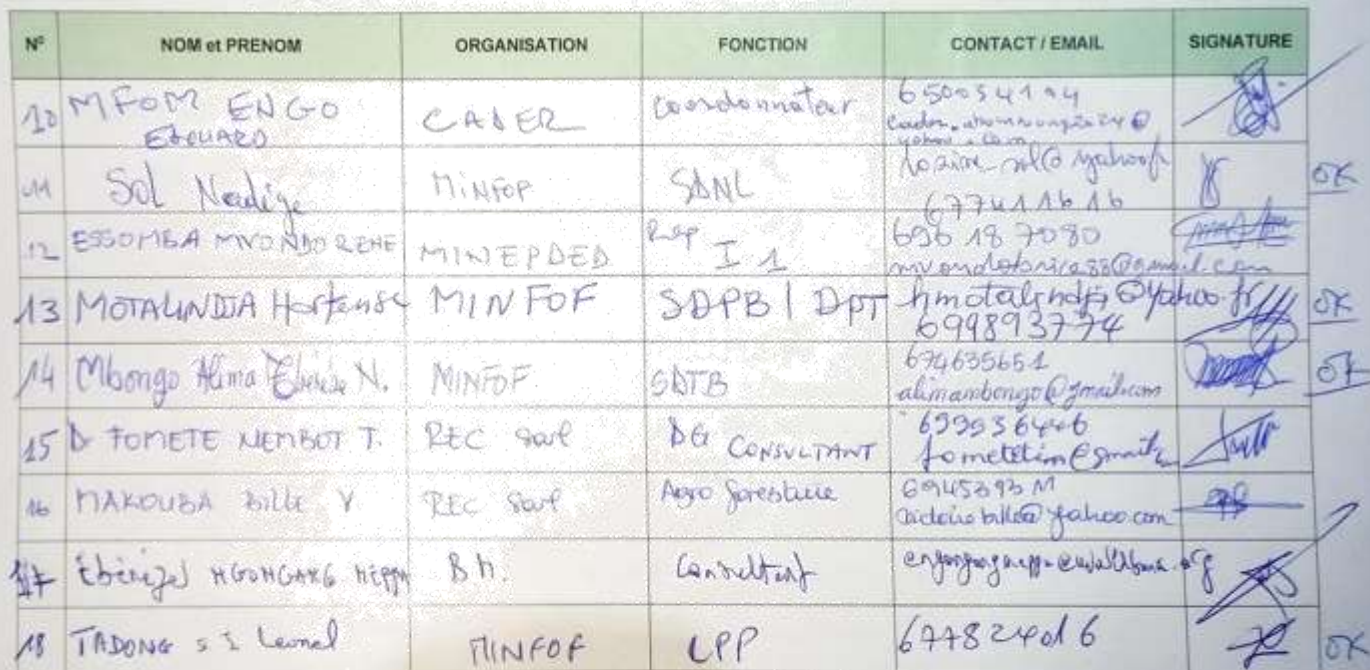 N° NOM et PRENOM ORGANISATION FONCTION CONTACT / EMAIL SIGNATURE
10 MFOM ENGO CADER Coordonnateur 650054194
EDOUARD
yahoo.com
11 Sol Nadige MINFOF SDNL @ yahoo.fr
677411616
12 ESSOMBA MVONDO RENE MINEPDED Rep I 1 696 18 7080
mvondofabrice88@gmail.com
13 MOTALINDJA Hortense MINFOF SDPB / DPT hmotalindja@yahoo.fr OK
699893774
14 Mbongo Alima N. MINFOF SDTB 674635651 OK
alimambongo@gmail.com
15 Dr FOMETE NEMBOT T. REC Sarl DG CONSULTANT 699936446
fometetim@gmail.
16 MAKOUBA Bille V REC Sarl Agro foresterie
yahoo.com
17 Ebénezel NGONGANG B M. Consultant
18 TADONG s I Leonel MINFOF LPP 677824016 OK